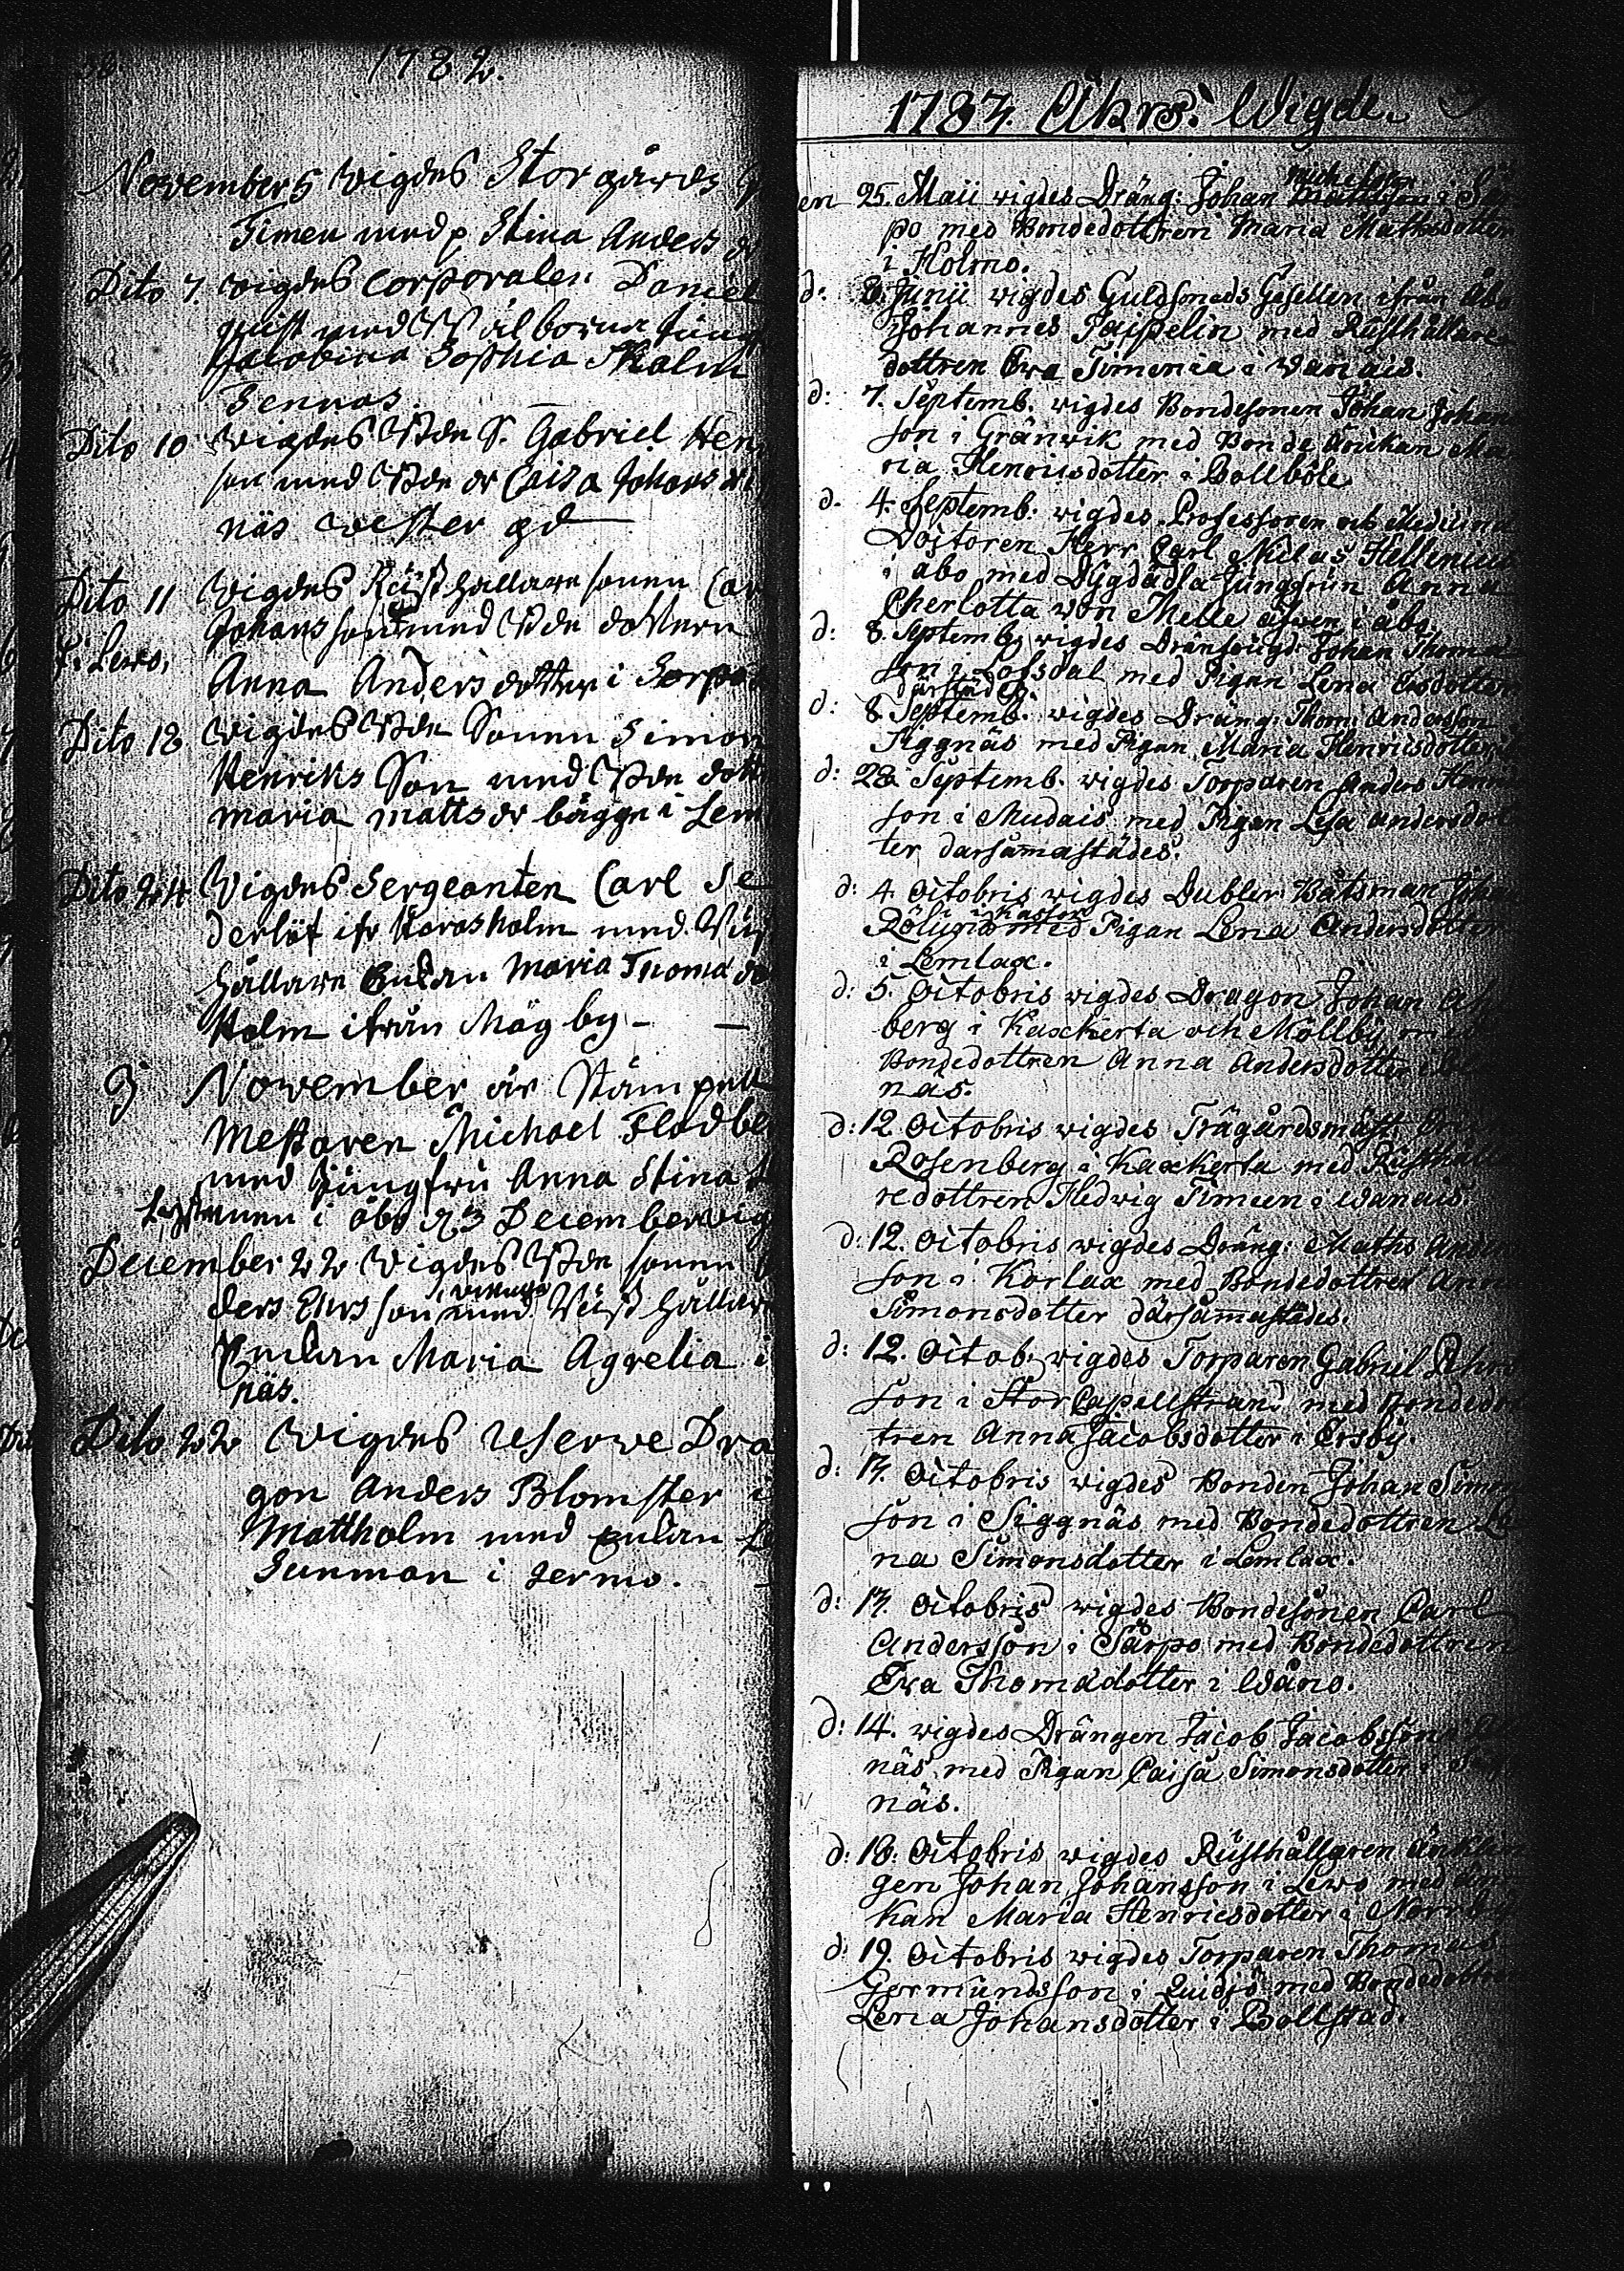 1782.
November 5 wigdes Storgårds
Timen med p. Stina Anders
Dito 7. wigdes Corporalen Daniel
quist med Wälborna Jung
Jacobina Sophia
Dito 10 wigdes Bde S. Gabriel Hen
son med Bde dr Caisa Johans dr
näs wester gd
Dito 11 wigdes Rüsthållare sonen Car
Johans son med Bde dottern
i Lewo,
Anna Anders dotter i Sorpo
Dito 12 wigdes Bde Sonen Simon
Henriks Son med Bde dott
maria matts dr bägge i Lem
Dito 24 Wigdes Sergeanten Carl Se
derlöf ifr Korosholm med Rüst
hållare Enkan Maria Thomæ do
Holm ifrån Mågby -
J November är Stämpell
Mestaren Michael Flodbe
med Jungfru Anna Stina
i åbo 23 December wig
December 22 wigdes Bde sonen
ders Ers son med Rüst hållar
Enkan Maria Agrelia i
näs.
Dito 22 wigdes Reserwe Dra
gon Anders Blomster i
Mattholm med Enkan
Gunman i Jermo.
1783. Åhrs. Wigde.
en 25. Maii wigdes Dräng: Johan Michelsson i
po med Bondedottren Maria Mathsdotter
i Holmo.
d: 8. Junii wigdes Guldsmeds Gesellen ifrån Åbo
Johannes Taipelin med Rüsthållare
dottren Ewa Timenia i Wanais.
d: 7. Septemb. wigdes Bondesonen Johan Johans
son i Gränwik med Bonde änckan Ma
ria Henricsdotter i Bollböle.
d. 4. Septemb. wigdes Professoren och Medicinæ
Doctoren Herr Carl Niclas Hellenius
i åbo med Dÿgdädla Jungfrun Anna
Cherlotta von Melle äfwen i åbo.
d: 8. Septemb. wigdes Johan Thomæ
son i Lofsdal med Pigan Lena
därstädes.
d: 8. Septemb. wigdes Dräng: Thom: Andersson
Siggnäs med Pigan Maria Henricsdotter
d: 28. Septemb. wigdes Torparen Anders Hen
son i Mudais med Pigan Lisa Andersdot
ter darsammastädes.
d: 4. Octobris wigdes Dubler: Båtsman Johan
med Pigan Lena Andersdotter
i Lemlax.
d: 5. Octobris wigdes Dragon Johan
berg i Kaxkerta och Möllbÿ
Bondedottren Anna Andersdotter
näs.
d: 12. Octobris wigdes Trägårdsmäst
Rosenberg i Kaxkerta med Rüsthålla
redottren Hedwig Timeen i Wanais.
d: 12. Octobris wigdes Dräng: Maths Anders
son i Korlax med Bondedottren Anna
Simonsdotter därsammastädes.
d: 12. Octob: wigdes Torparen Gabriel
son i Stor Capellstrand med Bondedot
tren Anna Jacobsdotter i Ersbÿ.
d: 13. Octobris wigdes Bonden Johan Simon
son i Siggnäs med Bondedottren Le
na Simonsdotter i Lemlax.
d: 13. Octobris wigdes Bondesonen Carl
Andersson i Sårpo med Bondedottren
Ewa Thomædotter i Wåno.
d: 14. wigdes Drängen Jacob Jacobsson
näs med Pigan Caisa Simonsdotter i
näs.
d: 18. Octobris wigdes Rüsthållaren Änklin
gen Johan Johansson i Lewo med än
kan Maria Henricsdotter i Norrbÿ
d: 19. Octobris wigdes Torparen Thomas
Germundsson i Quidjö med Bondedottren
Lena Johansdotter i Bollstad.